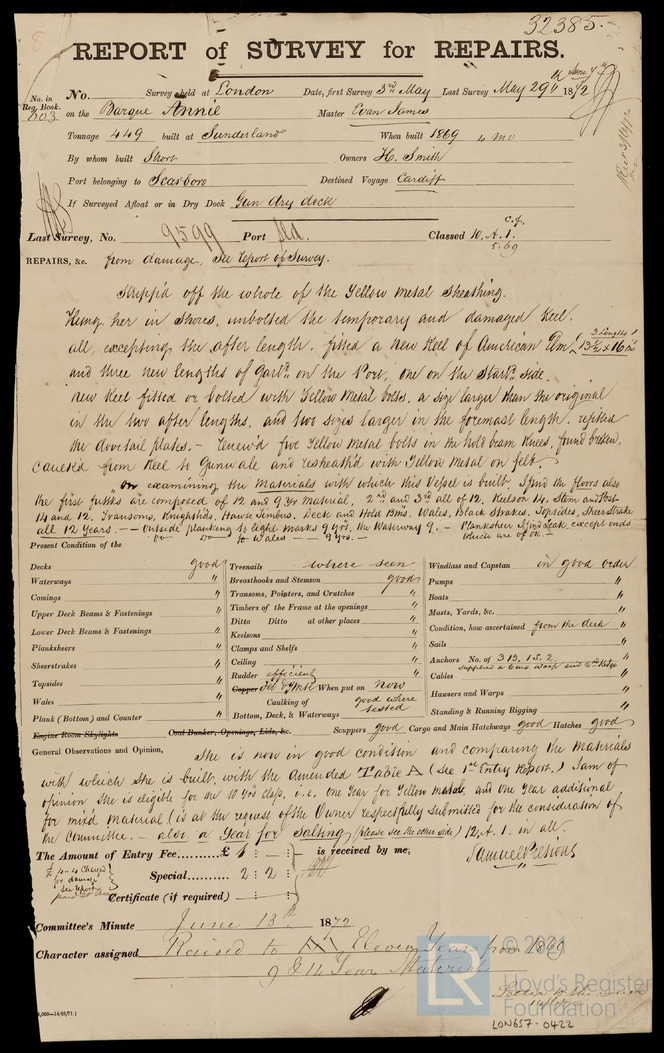 32385.
8
REPORT of SURVEY for REPAIRS.
No. in Reg. Book. 603 No. Survey held at London Date, first Survey 3rd May Last Survey May 29th 1872
June 7th
on the Barque Annie Master Evan James
Tonnage 449 built at Sunderland When built 1869 4 mo
By whom built Short Owners H. Smith
Port belonging to Scarboro Destined Voyage Cardiff
If Surveyed Afloat or in Dry Dock Gun dry dock
Last Survey, No. 9599 Port Sld. Classed 10. A. 1.
c.f.
5.69
REPAIRS, &c. from damage, See Report of Survey.
Stripp'd off the whole of the Yellow Metal Sheathing.
Hung her in Shores, unbolted the temporary and damaged Keel.
all, excepting the after length. fitted a new Keel of American Elm (3 lengths 13½ x 16 in)
and three new lengths of Garbd. on the Port, one on the Starbd. side.
new Keel fitted or bolted with Yellow Metal bolts, a size larger than the original
in the two after lengths, and two sizes larger in the foremast length. refitted
the dovetail plates. – Renew'd five Yellow Metal bolts in the hold beam Knees, found broken.
Caulk'd from Keel to Gunwale and resheath'd with Yellow Metal on felt.
On examining the Materials with which this Vessel is built. I find the floors also
the first futtks are composed of 12 and 9 Yr Material, 2nd and 3rd all of 12. Kelson 14. Stem and Post
14 and 12. Transoms, Knightds, Hawse Timbers, Deck and Hold Bms. Wales, Black Strakes, Topsides, Sheer Strake
all 12 Years. – – Outside planking to light marks 9 yrs, the Waterway 9. – Planksheer I find Teak, except ends
Do Do to Wales – – 9 yrs. – which are of ok. –
Present Condition of the
Decks good
Waterways "
Comings "
Upper Deck Beams & Fastenings "
Lower Deck Beams & Fastenings "
Planksheers "
Sheerstrakes "
Topsides "
Wales "
Plank (Bottom) and Counter "
Engine Room Skylights
Treenails where seen
Breasthooks and Stemson good
Transoms, Pointers, and Crutches "
Timbers of the Frame at the openings "
Ditto Ditto at other places "
Keelsons "
Clamps and Shelfs "
Ceiling "
Rudder efficient
Copper Fel & YMR When put on now
Caulking of Bottom, Deck, & Waterways good where tested
Coal Bunker, Openings, Lids, &c.
Windlass and Capstan in good order
Pumps "
Boats "
Masts, Yards, &c. "
Condition, how ascertained from the deck "
Sails "
Anchors No. of 3 B, 1 S. 2. "
Cables "
Hawsers and Warps "
Standing & Running Rigging "
Scuppers good Cargo and Main Hatchways good Hatches good
General Observations and Opinion, She is now in good condition and comparing the Materials
with which she is built, with the Amended Table A (See 1st Entry Report.) I am of
opinion she is eligible for the 10 Yrs class, i.e. one Year for Yellow metal, and one Year additional
for mix'd Material (is at the request of the Owner respectfully submitted for the consideration of
the Committee. – also a Year for Salting (please see the other side) 12. A. 1. in all.
The Amount of Entry Fee........... £ 1 : — : is received by me,
Special........... 2 : 2 :
Certificate (if required)
£ 4 – 4 Charged for damage See report
Samuel Pressous
Committee's Minute June 13th 1872
Character assigned Raised to Eleven Years from 1869
9 & 12 Year Material
© 2021
LR
Lloyd's Register
Foundation
LON657-0422